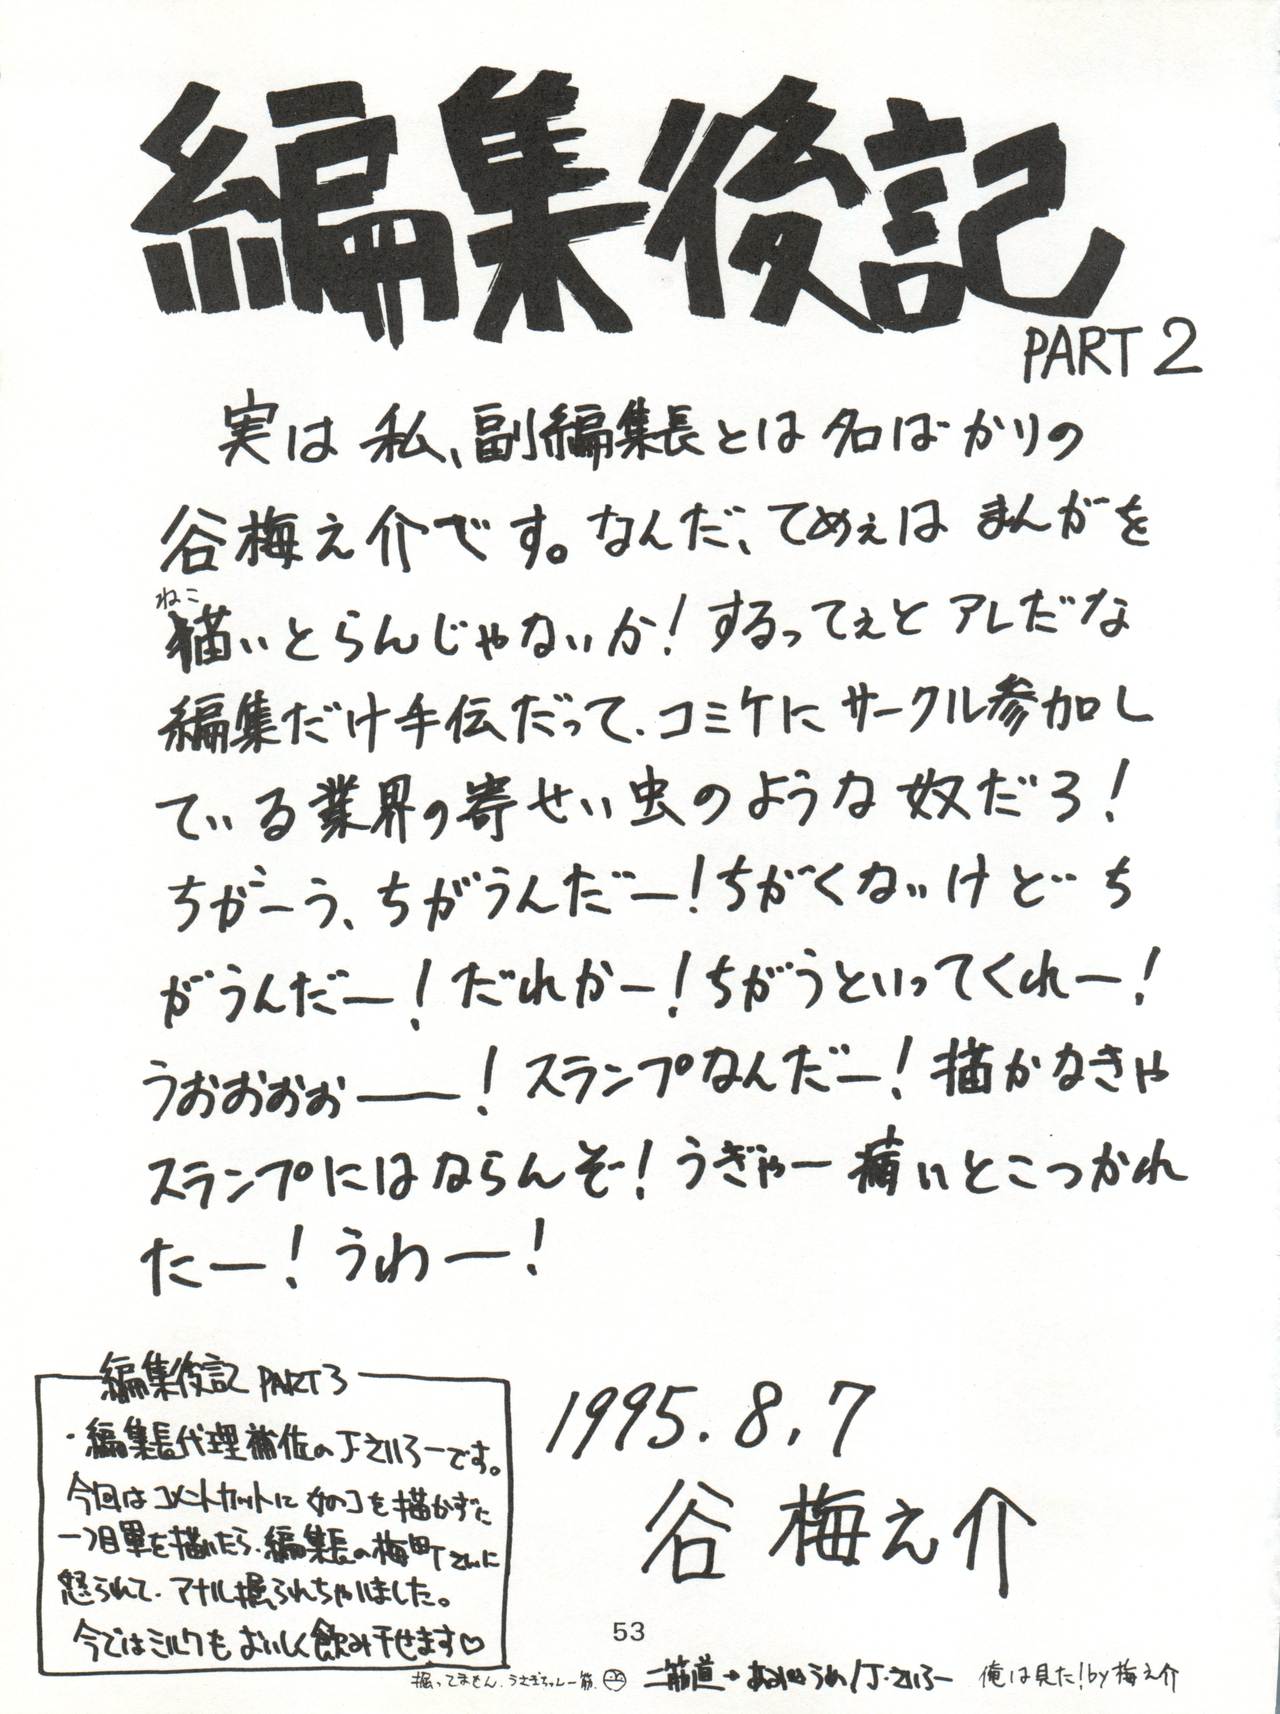 編集後記
PART 2
実は私、副編集長とは名ばかりの
谷梅之介です。なんだ、てめぇは まんがを
ねこ
猫いとらんじゃないか!するってぇと アレだな
編集だけ手伝だって、コミケにサークル参加し
ている業界の寄せい虫のような奴だろ!
ちがーう、ちがうんだー!ちがくないけど ち
がうんだー!だれかー!ちがうといってくれー!
うおおおぉ――!スランプなんだー!描かなきゃ
スランプにはならんぞ!うぎゃー 痛いとこつかれ
たー!うわー!
1995.8.7
谷 梅之介
編集後記 PART3
・編集長代理補佐のJ・さいろーです。
今回はコメントカットに女のコを描かずに
一つ目軍を描いたら、編集長の梅町さんに
怒られて、アナル掘られちゃいました。
今ではミルクもおいしく飲み干せます♡
53
掘ってません。うさぎちゃん一筋。
二筋道→ うめ/J・さいろー
俺は見た!by梅之介